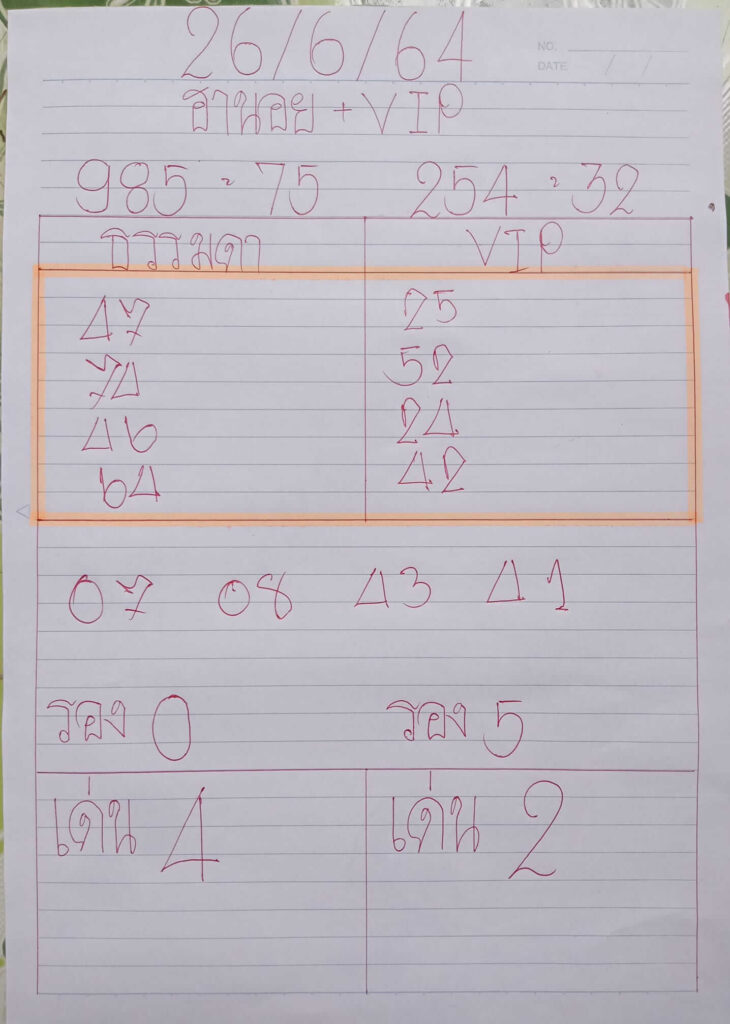 26/6/64
NO.
DATE / /
ฮานอย + VIP
985 - 75 254 - 32
ธรรมดา VIP
47 25
52
74
46 24
64 42
07 08 43 41
รอง 0 รอง 5
เด่น 4 เด่น 2